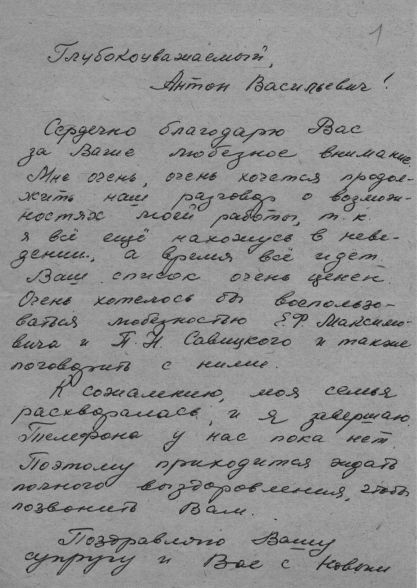 1
Глубокоуважаемый,
Антон Васильевич!
Сердечно благодарю Вас
за Ваше любезное внимание.
Мне очень, очень хочется продол-
жить наш разговор о возмож-
ностях моей работы, т.к.
я всё ещё нахожусь в неве-
дении, а время всё идет.
Ваш список очень ценен.
Очень хотелось бы воспользо-
ваться любезностью Е.Ф. Максимо-
вича и П.Н. Савицкого и также
поговорить с ними.
К сожалению, моя семья
расхворалась, и я завершаю.
Телефона у нас пока нет.
Поэтому приходится ждать
полного выздоровления, чтобы
позвонить Вам.
Поздравляю Вашу
супругу и Вас с Новым